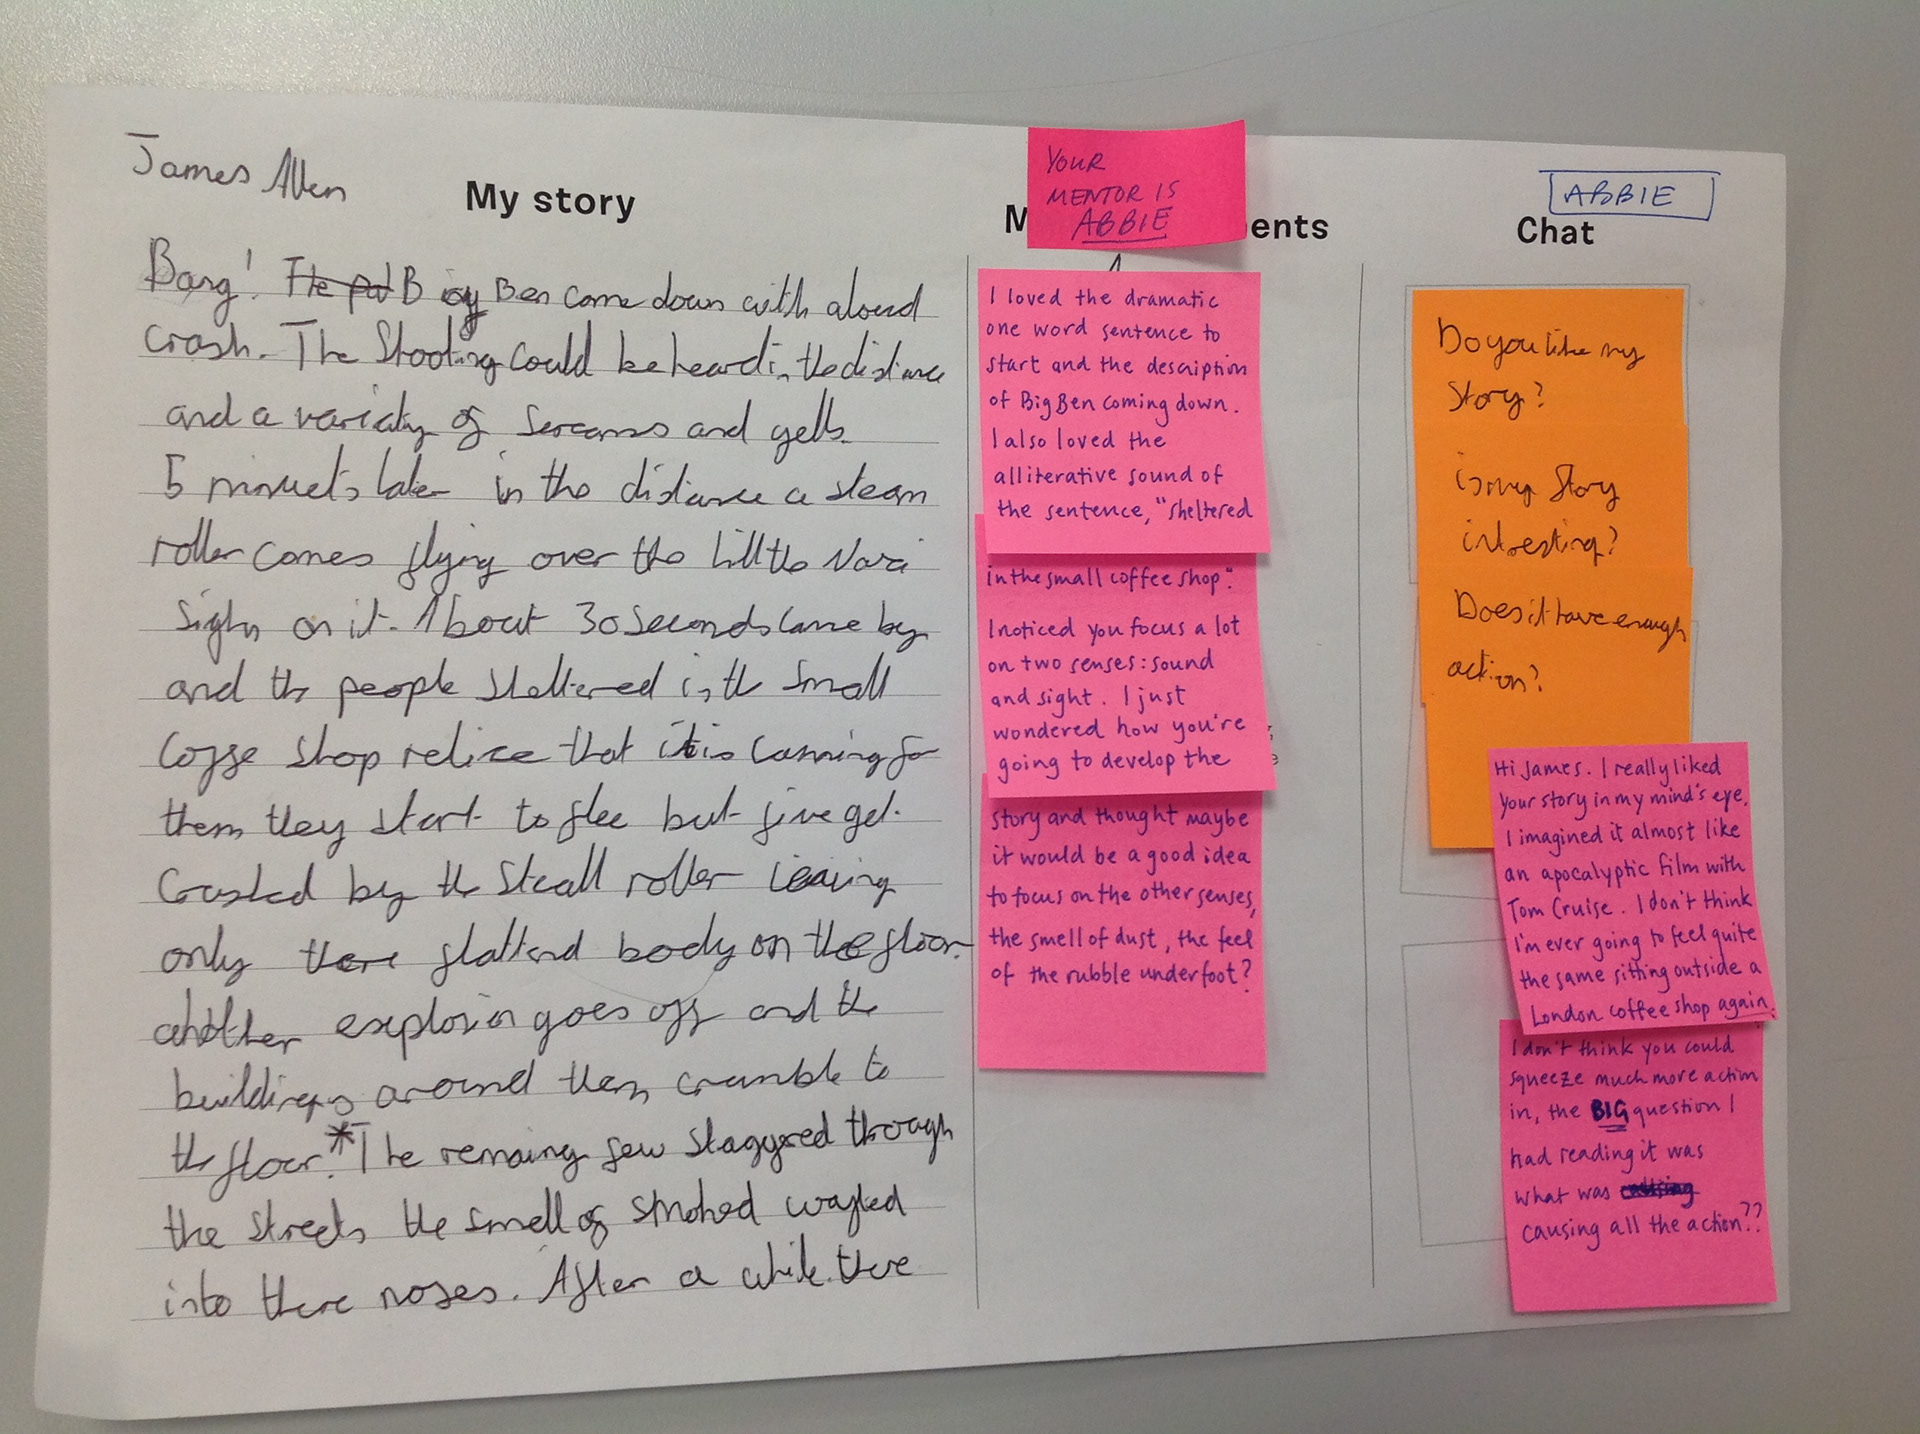 James Allen
My story
Bang! The pa B ig Ben come down with aloud
crash. The Shooting Could be heard in the distance
and a variaty of screams and yells.
5 minuets later in the distance a steam
roller comes flying over the little
sighn on it. About 30 seconds came by
and the people Sheltered in the small
coffe shop relize that it is comming for
them they start to flee but five get
Crushed by the Steall roller leaving
only there flattend body on the floor.
another explosion goes off and the
buildings around them crumble to
the floor.* The remaing few staggered through
the streets the smell of smoked wafted
into there noses. After a while there
YOUR
MENTOR IS
ABBIE
M ents
I loved the dramatic
one word sentence to
start and the description
of Big Ben coming down.
I also loved the
alliterative sound of
the sentence, "sheltered
in the small coffee shop".
I noticed you focus a lot
on two senses: sound
and sight. I just
wondered how you're
going to develop the
story and thought maybe
it would be a good idea
to focus on the other senses,
the smell of dust, the feel
of the rubble underfoot?
ABBIE
Chat
Do you like my
Story?
is my Story
intresting?
Does it have enough
action?
Hi James. I really liked
your story in my mind's eye.
I imagined it almost like
an apocalyptic film with
Tom Cruise. I don't think
I'm ever going to feel quite
the same sitting outside a
London coffee shop again.
I don't think you could
squeeze much more action
in, the BIG question I
had reading it was
what was
causing all the action??